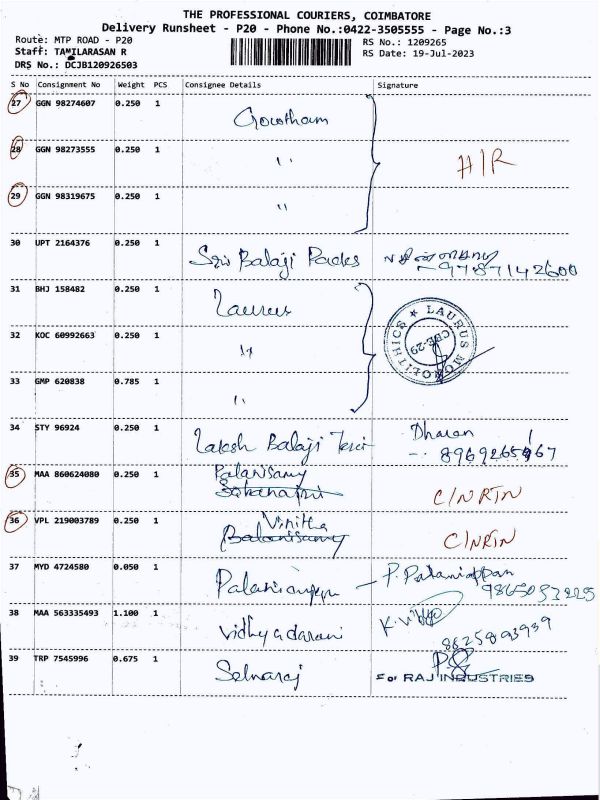 THE PROFESSIONAL COURIERS, COIMBATORE
Delivery Runsheet - P20 - Phone No.:0422-3505555 - Page No.:3
Route: MTP ROAD - P20
RS No.: 1209265
Staff: TAMILARASAN R
RS Date: 19-Jul-2023
DRS No.: DCJB120926503
S No Consignment No Weight PCS Consignee Details Signature
27 GGN 98274607 0.250 1 Gowtham
28 GGN 98273555 0.250 1 " H/R
29 GGN 98319675 0.250 1 "
30 UPT 2164376 0.250 1 Sri Balaji Packs 9787142600
31 BHJ 158482 0.250 1 Laurus
32 KOC 60992663 0.250 1 " LAURUS MONOLITHICS ★ CBE-29
33 GMP 620838 0.785 1 "
34 STY 96924 0.250 1 Balaji Dharan
35 MAA 860624080 0.250 1 Palanisamy C/NRTN
36 VPL 219003789 0.250 1 Vinitha Balanisamy C/NRTN
37 MYD 4724580 0.050 1 P. Palaniappan
38 MAA 563335493 1.100 1 Vidhyadarani K. Vidya 8625893939
39 TRP 7545996 0.675 1 Selvaraj
For RAJ INDUSTRIES